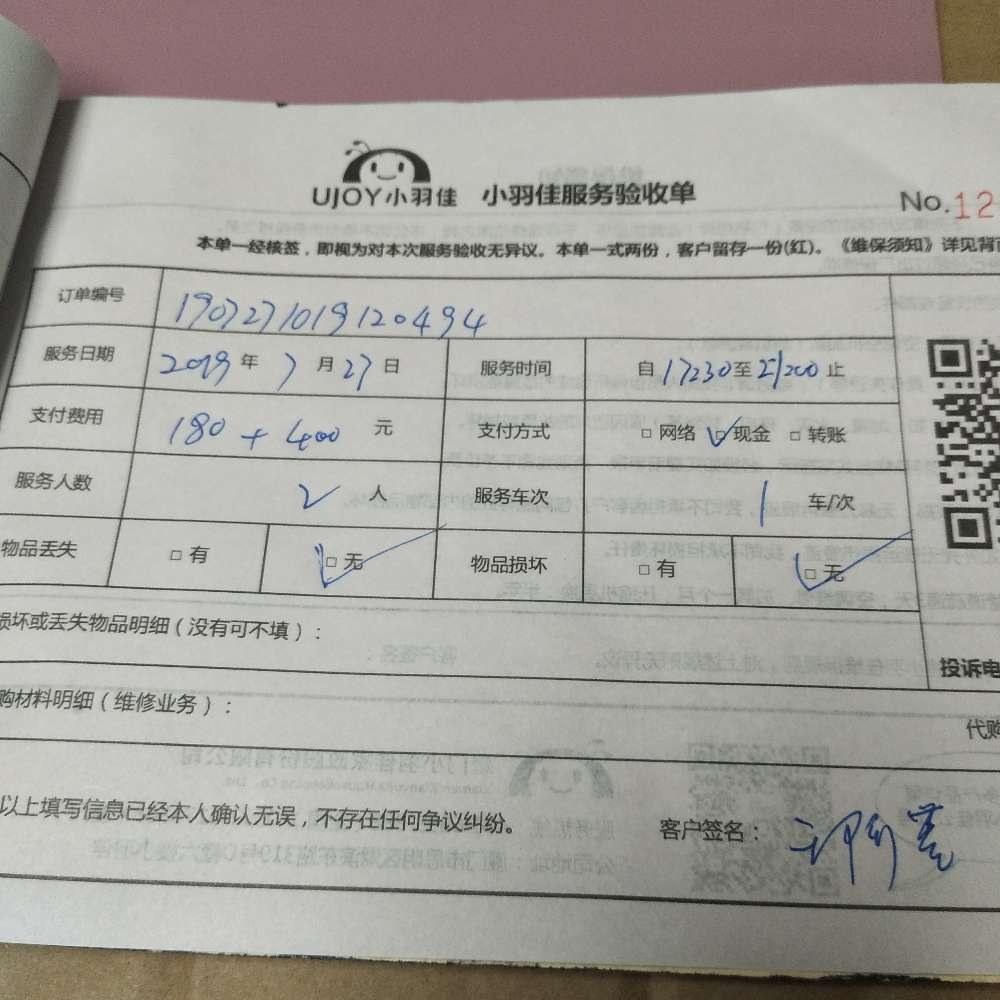 UJOY小羽佳 小羽佳服务验收单
No.12
本单一经核签，即视为对本次服务验收无异议。本单一式两份，客户留存一份(红)。《维保须知》详见背面
订单编号 1907271019120494
服务日期 2019 年 7 月 27 日 服务时间 自 17:30 至 21:00 止
支付费用 180 + 400 元 支付方式 □ 网络 □ 现金 □ 转账
服务人数 2 人 服务车次 1 车/次
物品丢失 □ 有 □ 无 物品损坏 □ 有 □ 无
损坏或丢失物品明细（没有可不填）：
投诉电
购材料明细（维修业务）：
代购
以上填写信息已经本人确认无误，不存在任何争议纠纷。
客户签名：